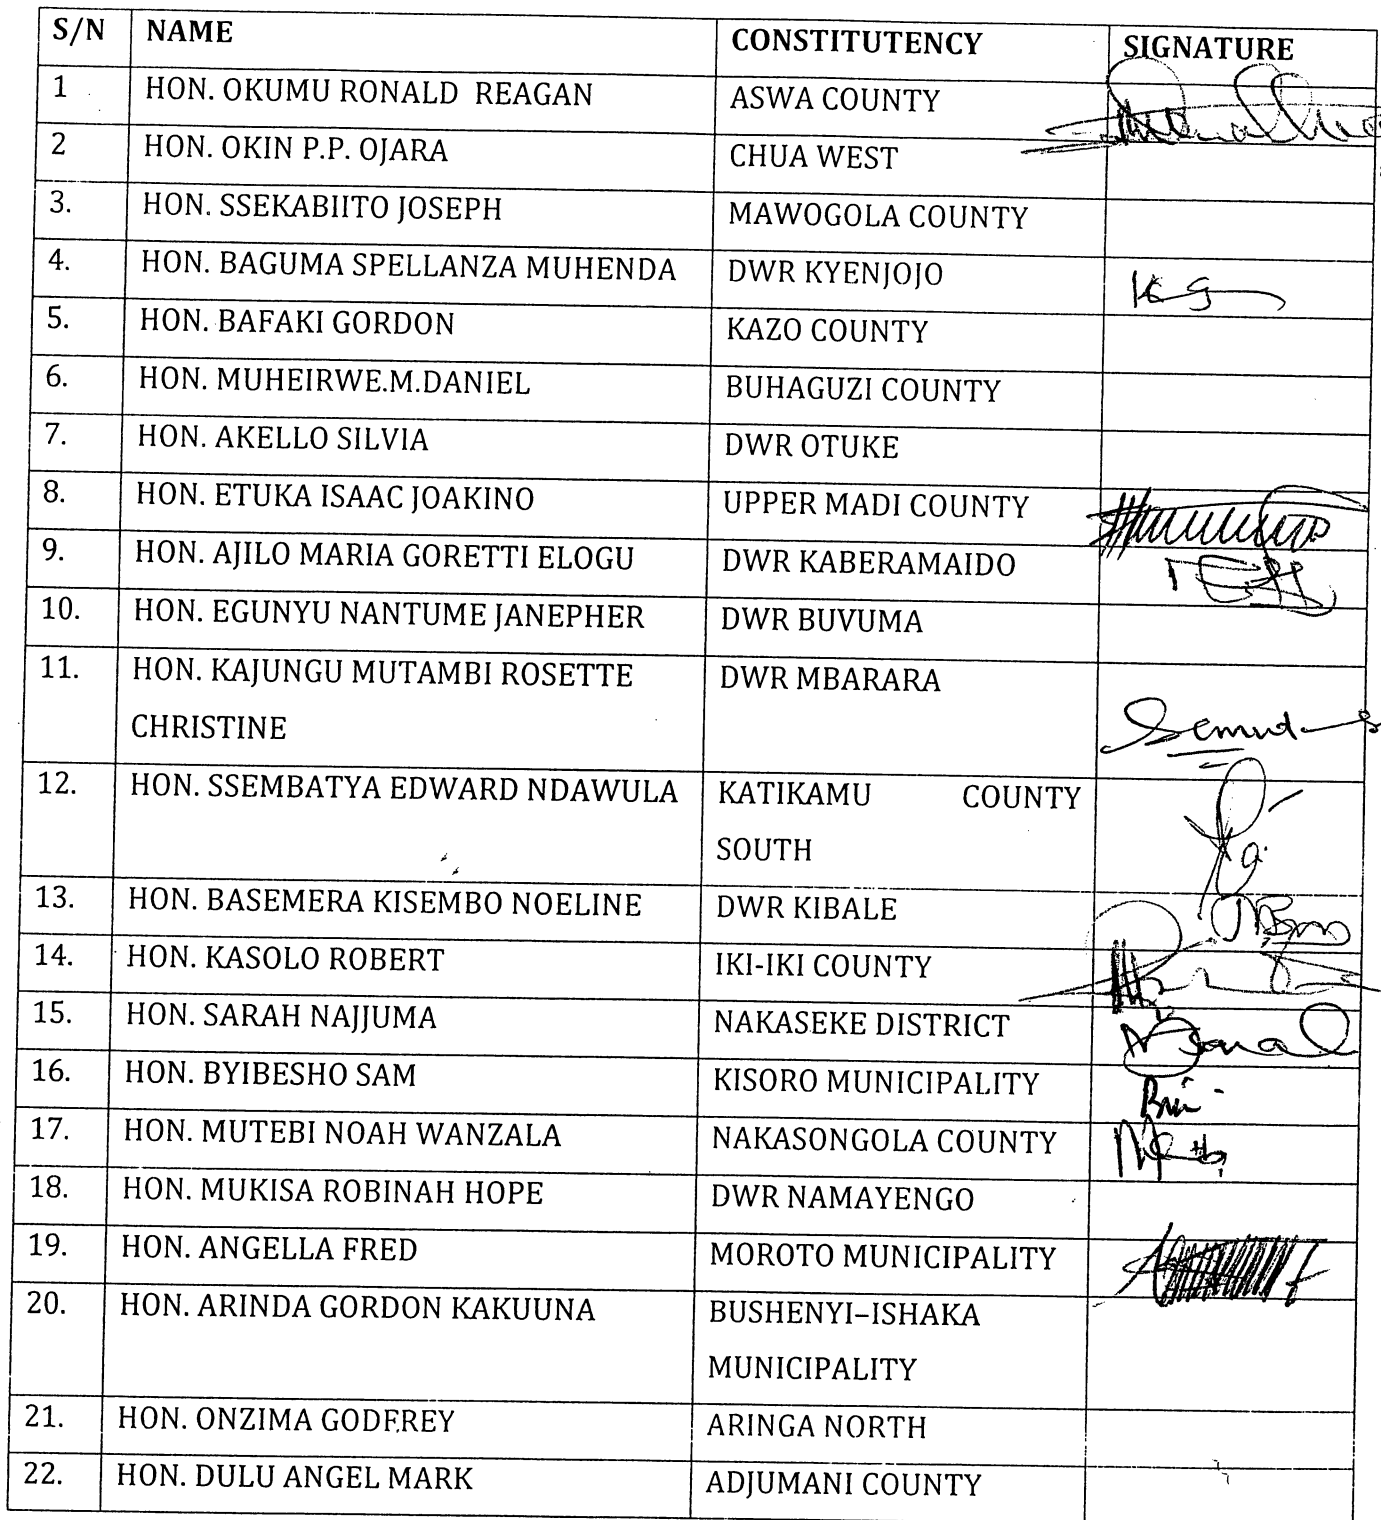 S/N NAME CONSTITUTENCY SIGNATURE
1 HON. OKUMU RONALD REAGAN ASWA COUNTY
2 HON. OKIN P.P. OJARA CHUA WEST
3. HON. SSEKABIITO JOSEPH MAWOGOLA COUNTY
4. HON. BAGUMA SPELLANZA MUHENDA DWR KYENJOJO
5. HON. BAFAKI GORDON KAZO COUNTY
6. HON. MUHEIRWE.M.DANIEL BUHAGUZI COUNTY
7. HON. AKELLO SILVIA DWR OTUKE
8. HON. ETUKA ISAAC JOAKINO UPPER MADI COUNTY
9. HON. AJILO MARIA GORETTI ELOGU DWR KABERAMAIDO
10. HON. EGUNYU NANTUME JANEPHER DWR BUVUMA
11. HON. KAJUNGU MUTAMBI ROSETTE DWR MBARARA
CHRISTINE
12. HON. SSEMBATYA EDWARD NDAWULA KATIKAMU COUNTY
SOUTH
13. HON. BASEMERA KISEMBO NOELINE DWR KIBALE
14. HON. KASOLO ROBERT IKI-IKI COUNTY
15. HON. SARAH NAJJUMA NAKASEKE DISTRICT
16. HON. BYIBESHO SAM KISORO MUNICIPALITY
17. HON. MUTEBI NOAH WANZALA NAKASONGOLA COUNTY
18. HON. MUKISA ROBINAH HOPE DWR NAMAYENGO
19. HON. ANGELLA FRED MOROTO MUNICIPALITY
20. HON. ARINDA GORDON KAKUUNA BUSHENYI–ISHAKA
MUNICIPALITY
21. HON. ONZIMA GODFREY ARINGA NORTH
22. HON. DULU ANGEL MARK ADJUMANI COUNTY